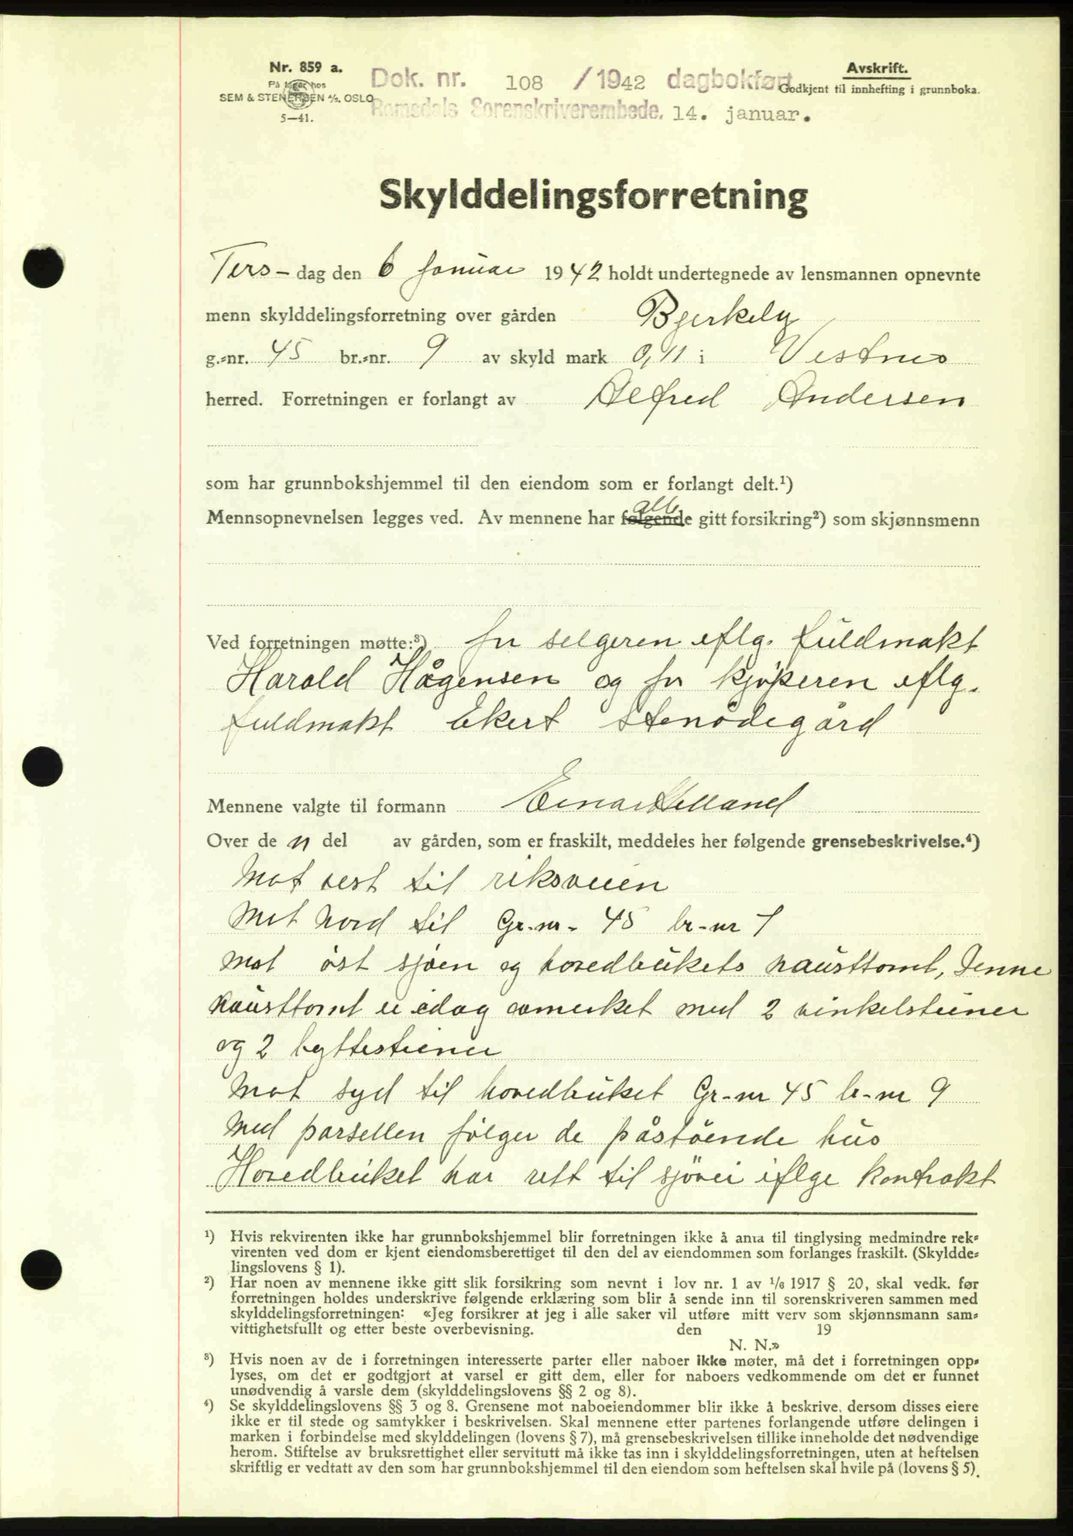 Nr. 859 a.
På lager hos
SEM & STENERSEN A/S. OSLO
5—41.
Dok. nr. 108 /1942 dagbokført
Romsdals Sorenskriverembede. 14. januar.
Avskrift.
Godkjent til innhefting i grunnboka.
Skylddelingsforretning
Tirs-dag den 6 januar 1942 holdt undertegnede av lensmannen opnevnte
menn skylddelingsforretning over gården Bjerkely
g.-nr. 45 br.-nr. 9 av skyld mark 0,41 i Vestnes
herred. Forretningen er forlangt av Alfred Andersen
som har grunnbokshjemmel til den eiendom som er forlangt delt.¹)
alle
Mennsopnevnelsen legges ved. Av mennene har følgende gitt forsikring²) som skjønnsmenn
Ved forretningen møtte:³) for selgeren iflg. fuldmakt
Harald Hågensen og for kjøperen iflg.
fuldmakt Ekert Stenødegård
Mennene valgte til formann Einar Helland
Over de n del av gården, som er fraskilt, meddeles her følgende grensebeskrivelse.⁴)
Mot vest til riksveien
Mot Nord til Gr-nr. 45 br-nr 7
Mot øst sjøen og hovedbrukets nausttomt, Denne
nausttomt er idag avmerket med 2 vinkelsteiner
og 2 byttesteiner
Mot syd til hovedbruket Gr-nr 45 br-nr 9
Med parsellen følger de påstående hus
Hovedbruket har rett til sjøvei iflge kontrakt
¹) Hvis rekvirenten ikke har grunnbokshjemmel blir forretningen ikke å anta til tinglysing medmindre rek-
virenten ved dom er kjent eiendomsberettiget til den del av eiendommen som forlanges fraskilt. (Skyldde-
lingslovens § 1).
²) Har noen av mennene ikke gitt slik forsikring som nevnt i lov nr. 1 av 1/6 1917 § 20, skal vedk. før
forretningen holdes underskrive følgende erklæring som blir å sende inn til sorenskriveren sammen med
skylddelingsforretningen: «Jeg forsikrer at jeg i alle saker vil utføre mitt verv som skjønnsmann sam-
vittighetsfullt og etter beste overbevisning. den 19
N. N.»
³) Hvis noen av de i forretningen interesserte parter eller naboer ikke møter, må det i forretningen opp-
lyses, om det er godtgjort at varsel er gitt dem, eller for naboers vedkommende om det er funnet
unødvendig å varsle dem (skylddelingslovens §§ 2 og 8).
⁴) Se skylddelingslovens §§ 3 og 8. Grensene mot naboeiendommer blir ikke å beskrive, dersom disses eiere
ikke er til stede og samtykker i beskrivelsen. Skal mennene etter partenes forlangende utføre delingen i
marken i forbindelse med skylddelingen (lovens § 7), må grensebeskrivelsen tillike inneholde det nødvendige
herom. Stiftelse av bruksrettighet eller servitutt må ikke tas inn i skylddelingsforretningen, uten at heftelsen
skriftlig er vedtatt av den som har grunnbokshjemmel til den eiendom som heftelsen skal hvile på (lovens § 5).